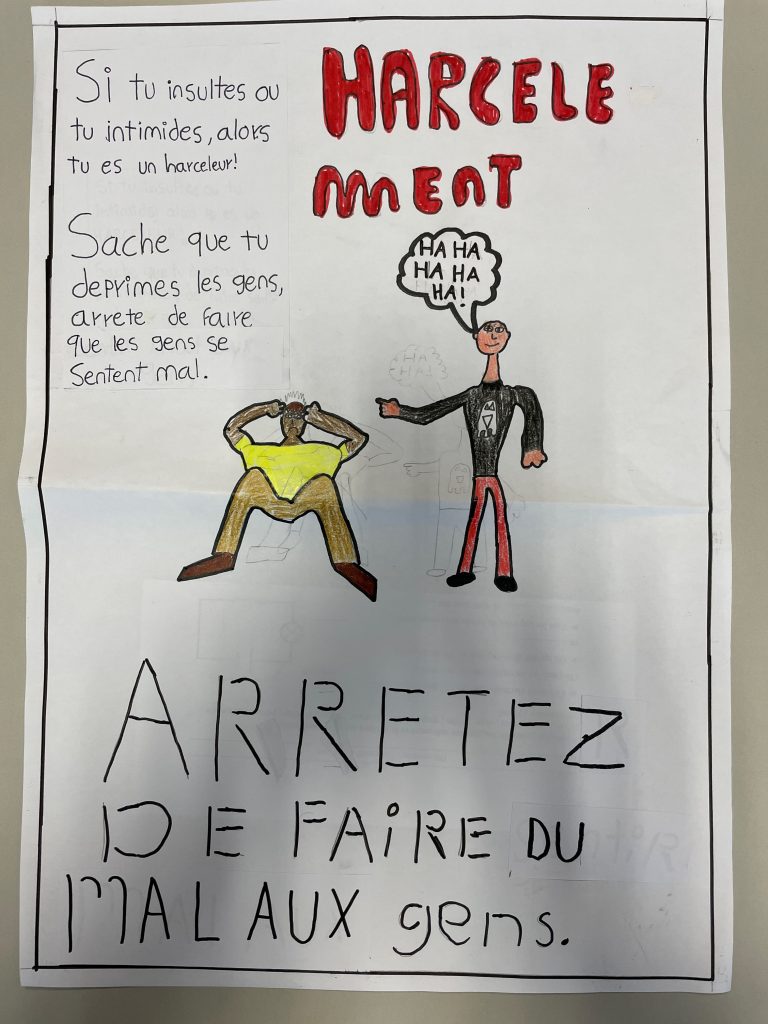 Si tu insultes ou
tu intimides, alors
tu es un harceleur!
Sache que tu
deprimes les gens,
arrete de faire
que les gens se
Sentent mal.
HARCELE
MENT
HA HA
HA HA
HA!
ARRETEZ
DE FAiRE DU
MAL AUX gens.